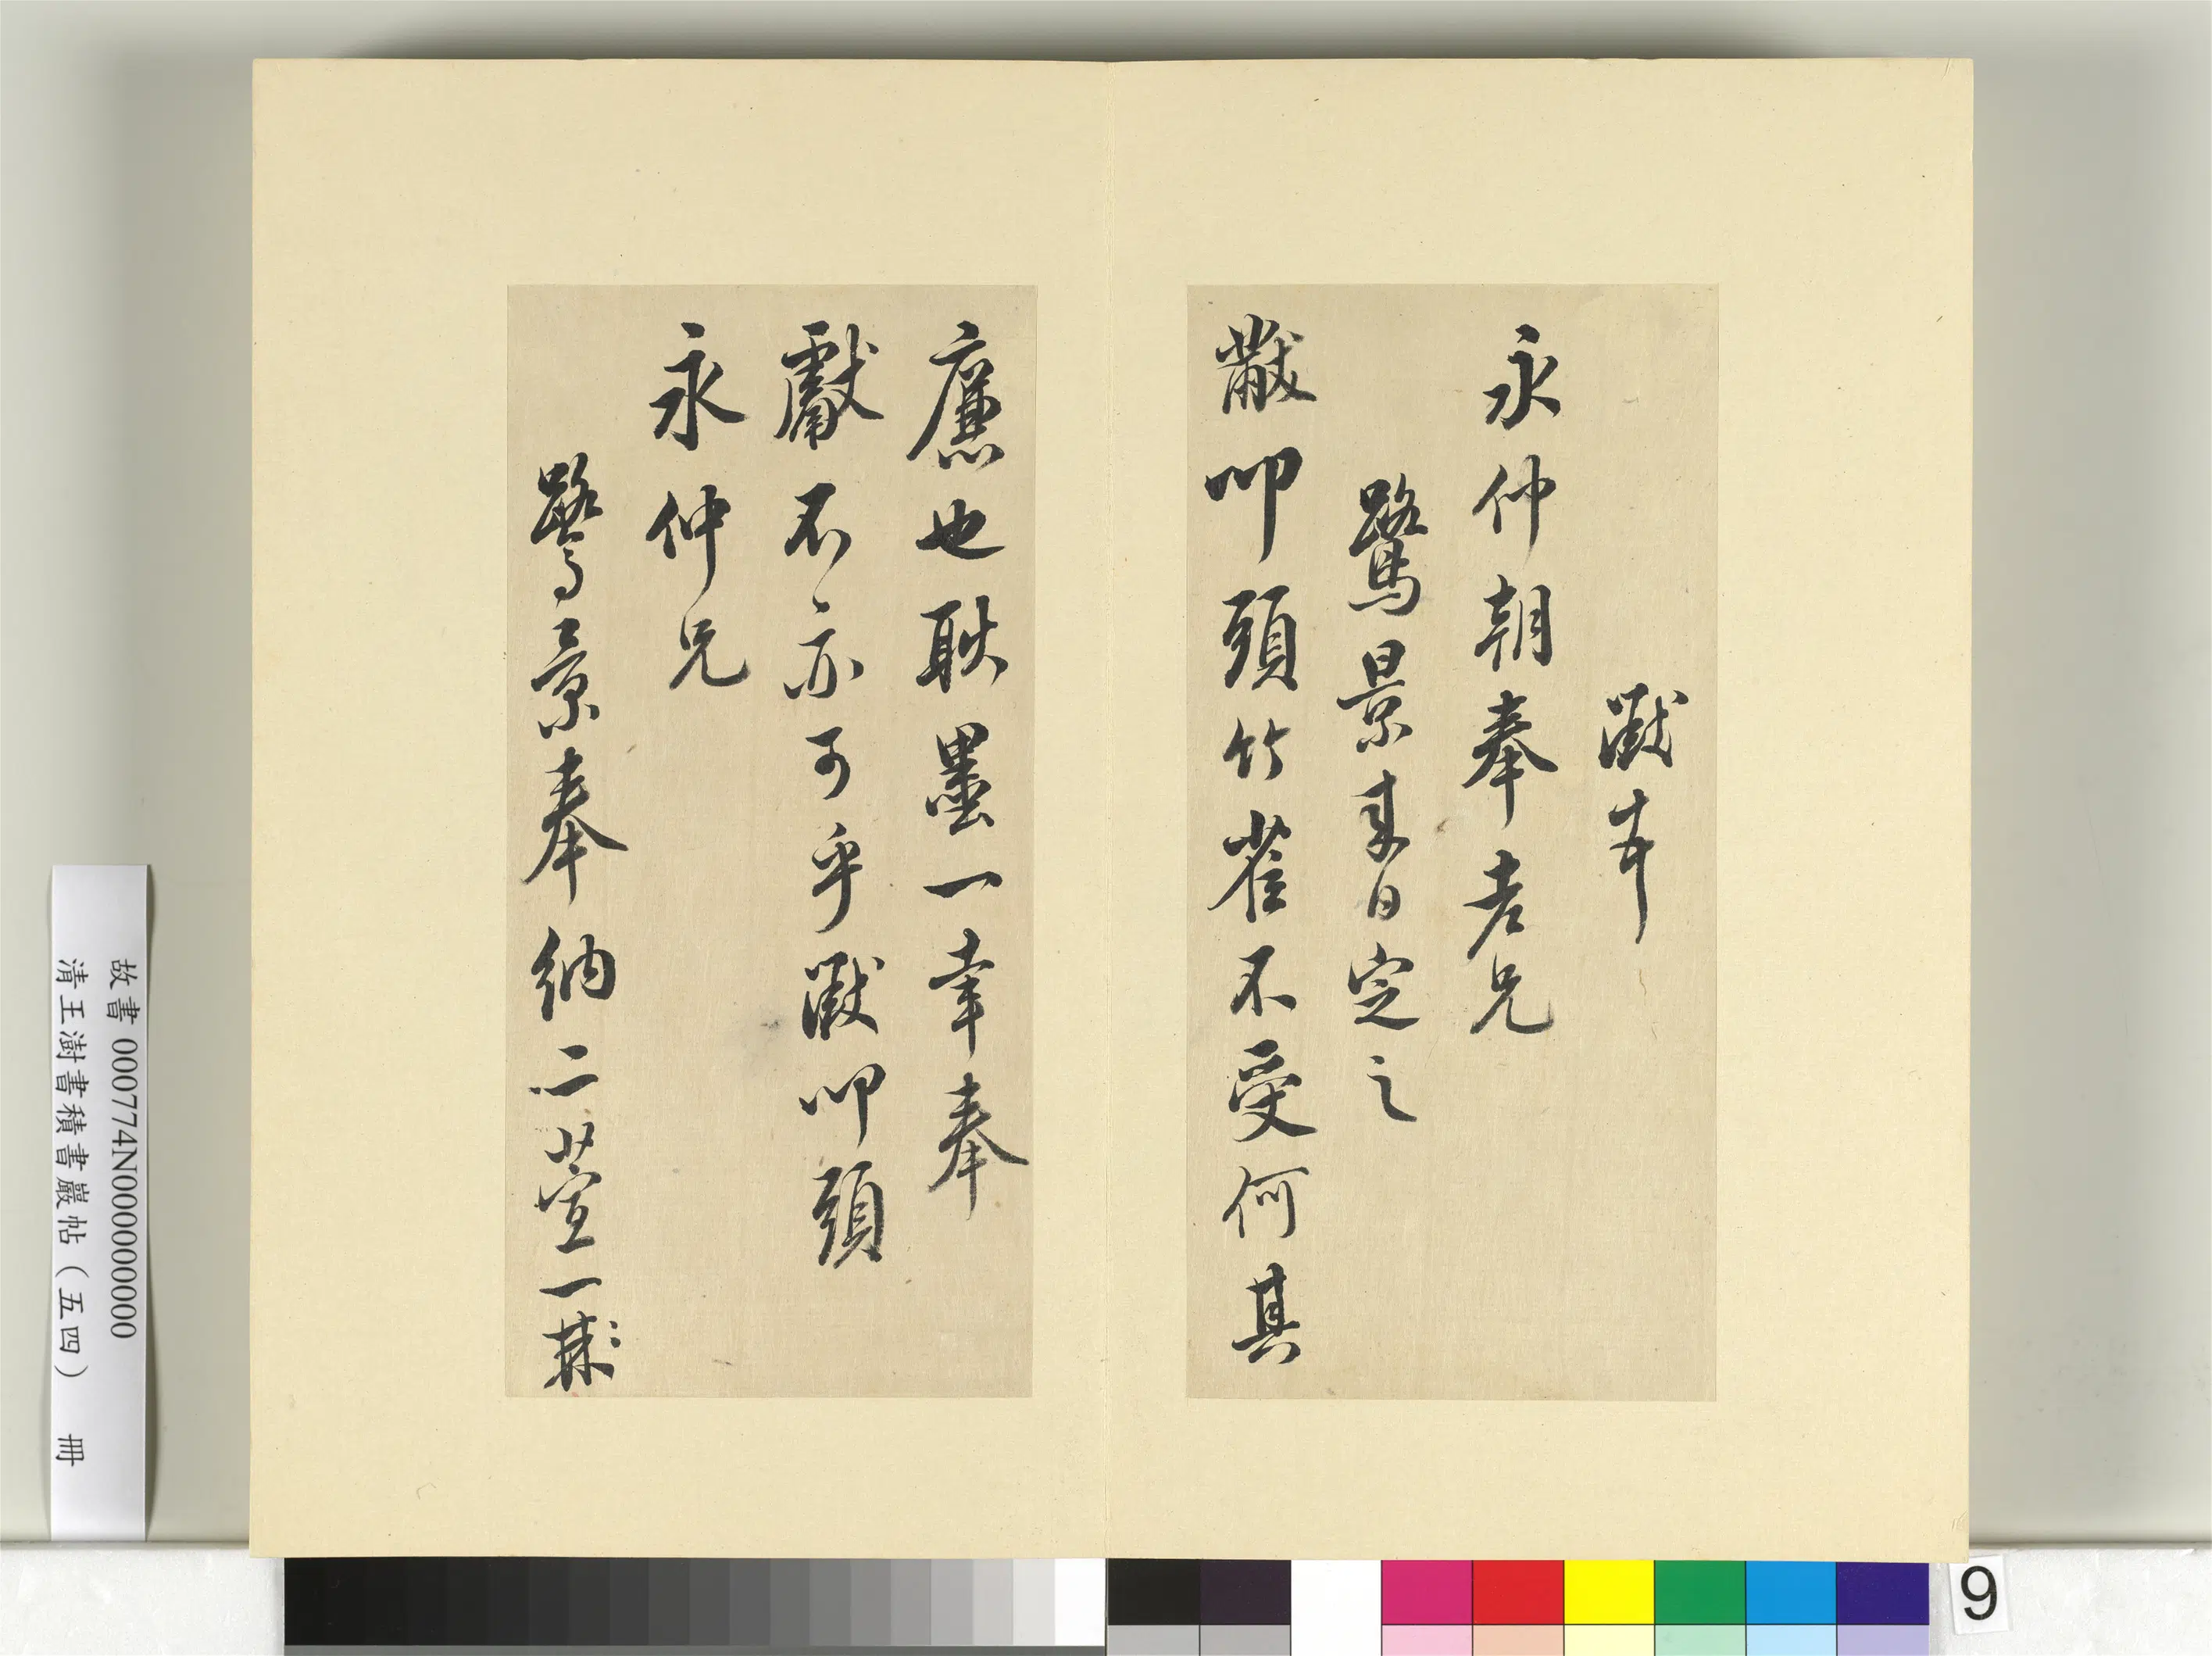 黻本
永仲朝奉老兄
鷺景來日定之
黻叩頭竹萑不受何其
廉也耿墨一幸奉
獻不亦可乎黻叩頭
永仲兄
鷺景奉納二萱一
故書 000774N000000000
清王澍書積書巖帖(五四) 冊
9